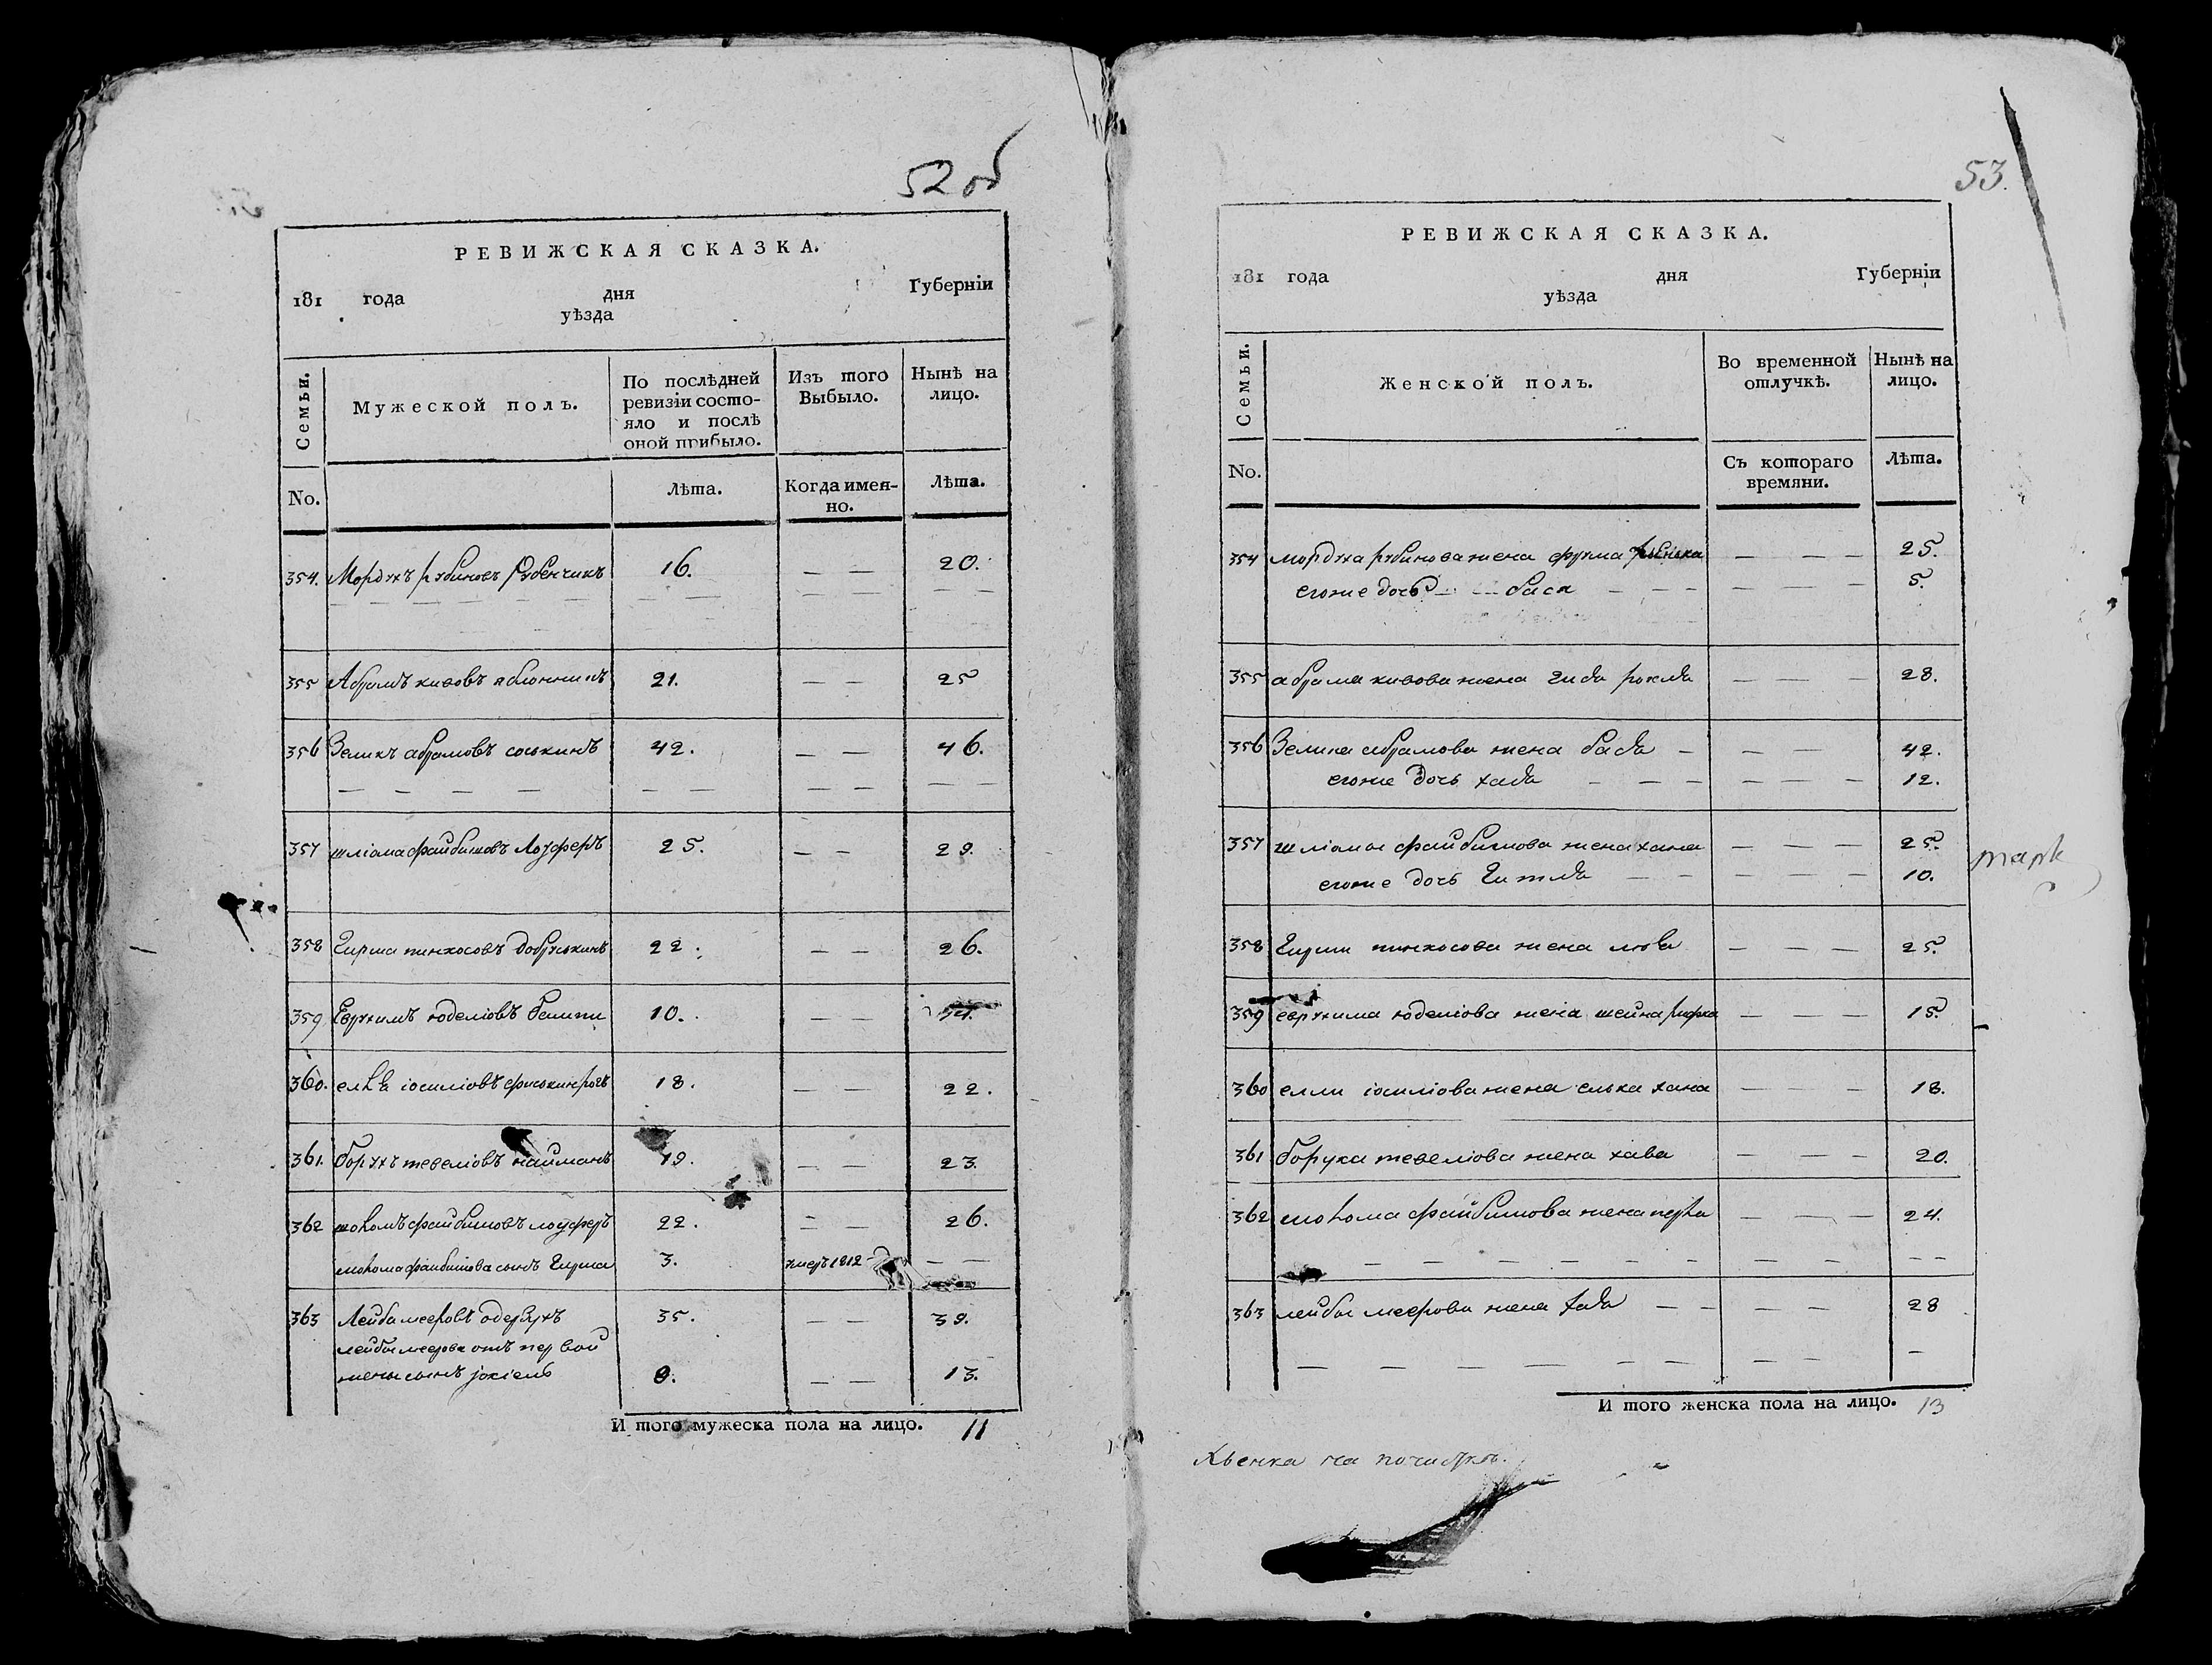 52 об
РЕВИЖСКАЯ СКАЗКА.
181 года дня Губернїи
уѣзда
Семьи. Мужеской полъ. По послѣдней ревизїи состояло и послѣ оной прибыло. Изъ того Выбыло. Нынѣ на лицо.
No. Лѣта. Когда именно. Лѣта.
354. Мордухъ рубиновъ Рубенчикъ 16. — — 20.
355 Абрамъ кивовъ яблочникъ 21. — — 25
356 Зеликъ абрамовъ соськинъ 42. — — 46.
357 шліома файбишовъ Лоуферъ 25. — — 29.
358 Гирша пинхосовъ добруськинъ 22. — — 26.
359 Еврухимъ юделіовъ 10. — —
360. елья іосиліовъ 18. — — 22.
361. борухъ тевеліовъ найманъ 19. — — 23.
362 шоломъ файбишовъ лоуферъ 22. — — 26.
шолома файбишова сынъ Гирша 3. умеръ 1812 — —
363 Лейба мееровъ 35. — — 39.
лейбы меерова отъ первой
жены сынъ іохіель 9. — — 13.
И того мужеска пола на лицо. 11
53.
РЕВИЖСКАЯ СКАЗКА.
181 года дня Губернїи
уѣзда
Семьи. Женской полъ. Во временной отлучкѣ. Нынѣ на лицо.
No. Съ котораго времяни. Лѣта.
354 мордуха рубинова жена фрума — — — 25.
егоже дочь бася — — — 5.
355 абрама кивова жена — — — 28.
356 Зелика абрамова жена бася — — — 42.
егоже дочь хася — — — 12.
357 шліомы файбишова жена хана — — — 25.
егоже дочь Гитля — — — 10.
358 Гирши пинхосова жена — — — 25.
359 еврухима юделіова жена шейна рифка — — — 15.
360 елли іосиліова жена элька хана — — — 18.
361 боруха тевеліова жена хава — — — 20.
362 шолома файбишова жена перла — — — 24.
363 лейбы меерова жена — — — 28
И того женска пола на лицо. 13